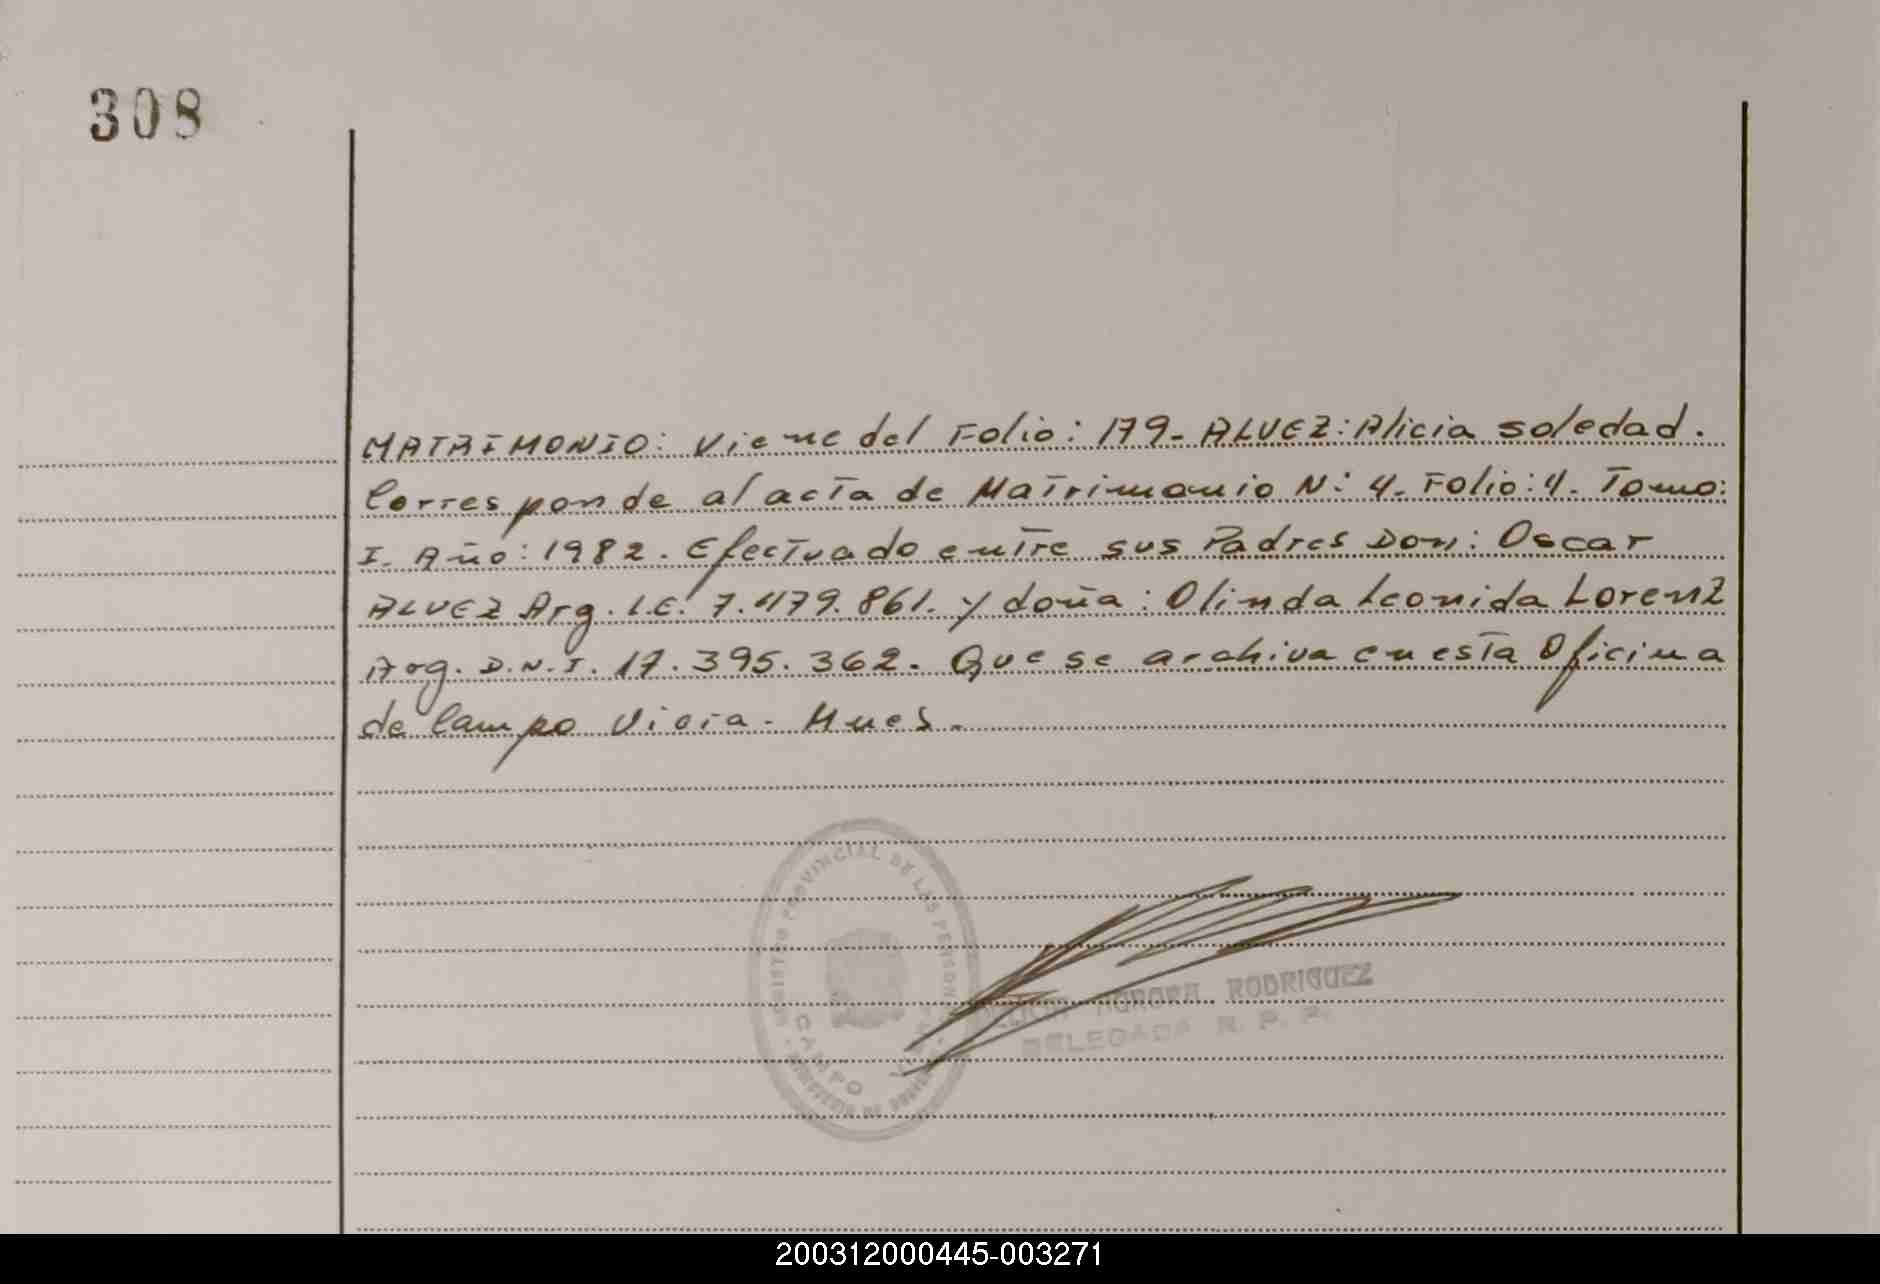 308
MATRIMONIO: Viene del Folio: 179- ALVEZ: Alicia Soledad.
Corresponde al acta de Matrimonio N: 4. Folio: 4. Tomo:
I. Año: 1982. Efectuado entre sus Padres Don: Oscar
ALVEZ Arg. L.E. 7.479.861. y doña: Olinda Leonida Lorenz
Arg. D.N.I. 17.395.362. Que se archiva en esta Oficina
de Campo Viera. Mnes.-
REGISTRO PROVINCIAL DE LAS PERSONAS
CAMPO
AURORA RODRIGUEZ
DELEGADA R. P. P.
200312000445-003271